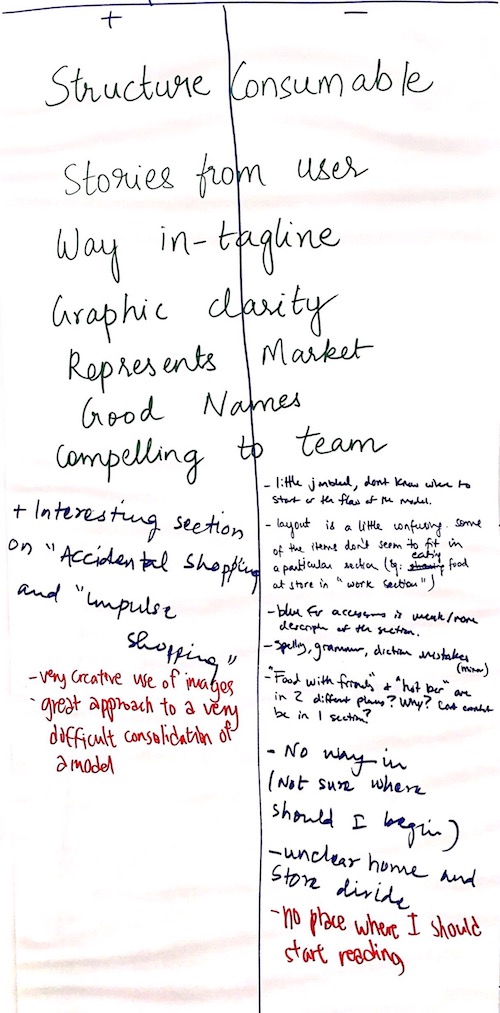 + −
Structure Consumable
Stories from user
Way in-tagline
Graphic clarity
Represents Market
Good Names
Compelling to team
+ Interesting section
on "Accidental shopping"
and "impulse
shopping"
- very creative use of images
- great approach to a very
difficult consolidation of
a model
- little jumbled, dont know where to
start or the flow of the model.
- layout is a little confusing. some
of the items don't seem to fit in
a particular section (eg: eating food
at store in "work section")
- blue for accessories is weak/more
description of the section.
- Spelling, grammar, diction mistakes
(minor)
- "Food with friends" & "hot bar" are
in 2 different places? Why? Can't
be in 1 section?
- No way in
(Not sure where
should I begin)
- unclear home and
store divide
- no place where I should
start reading